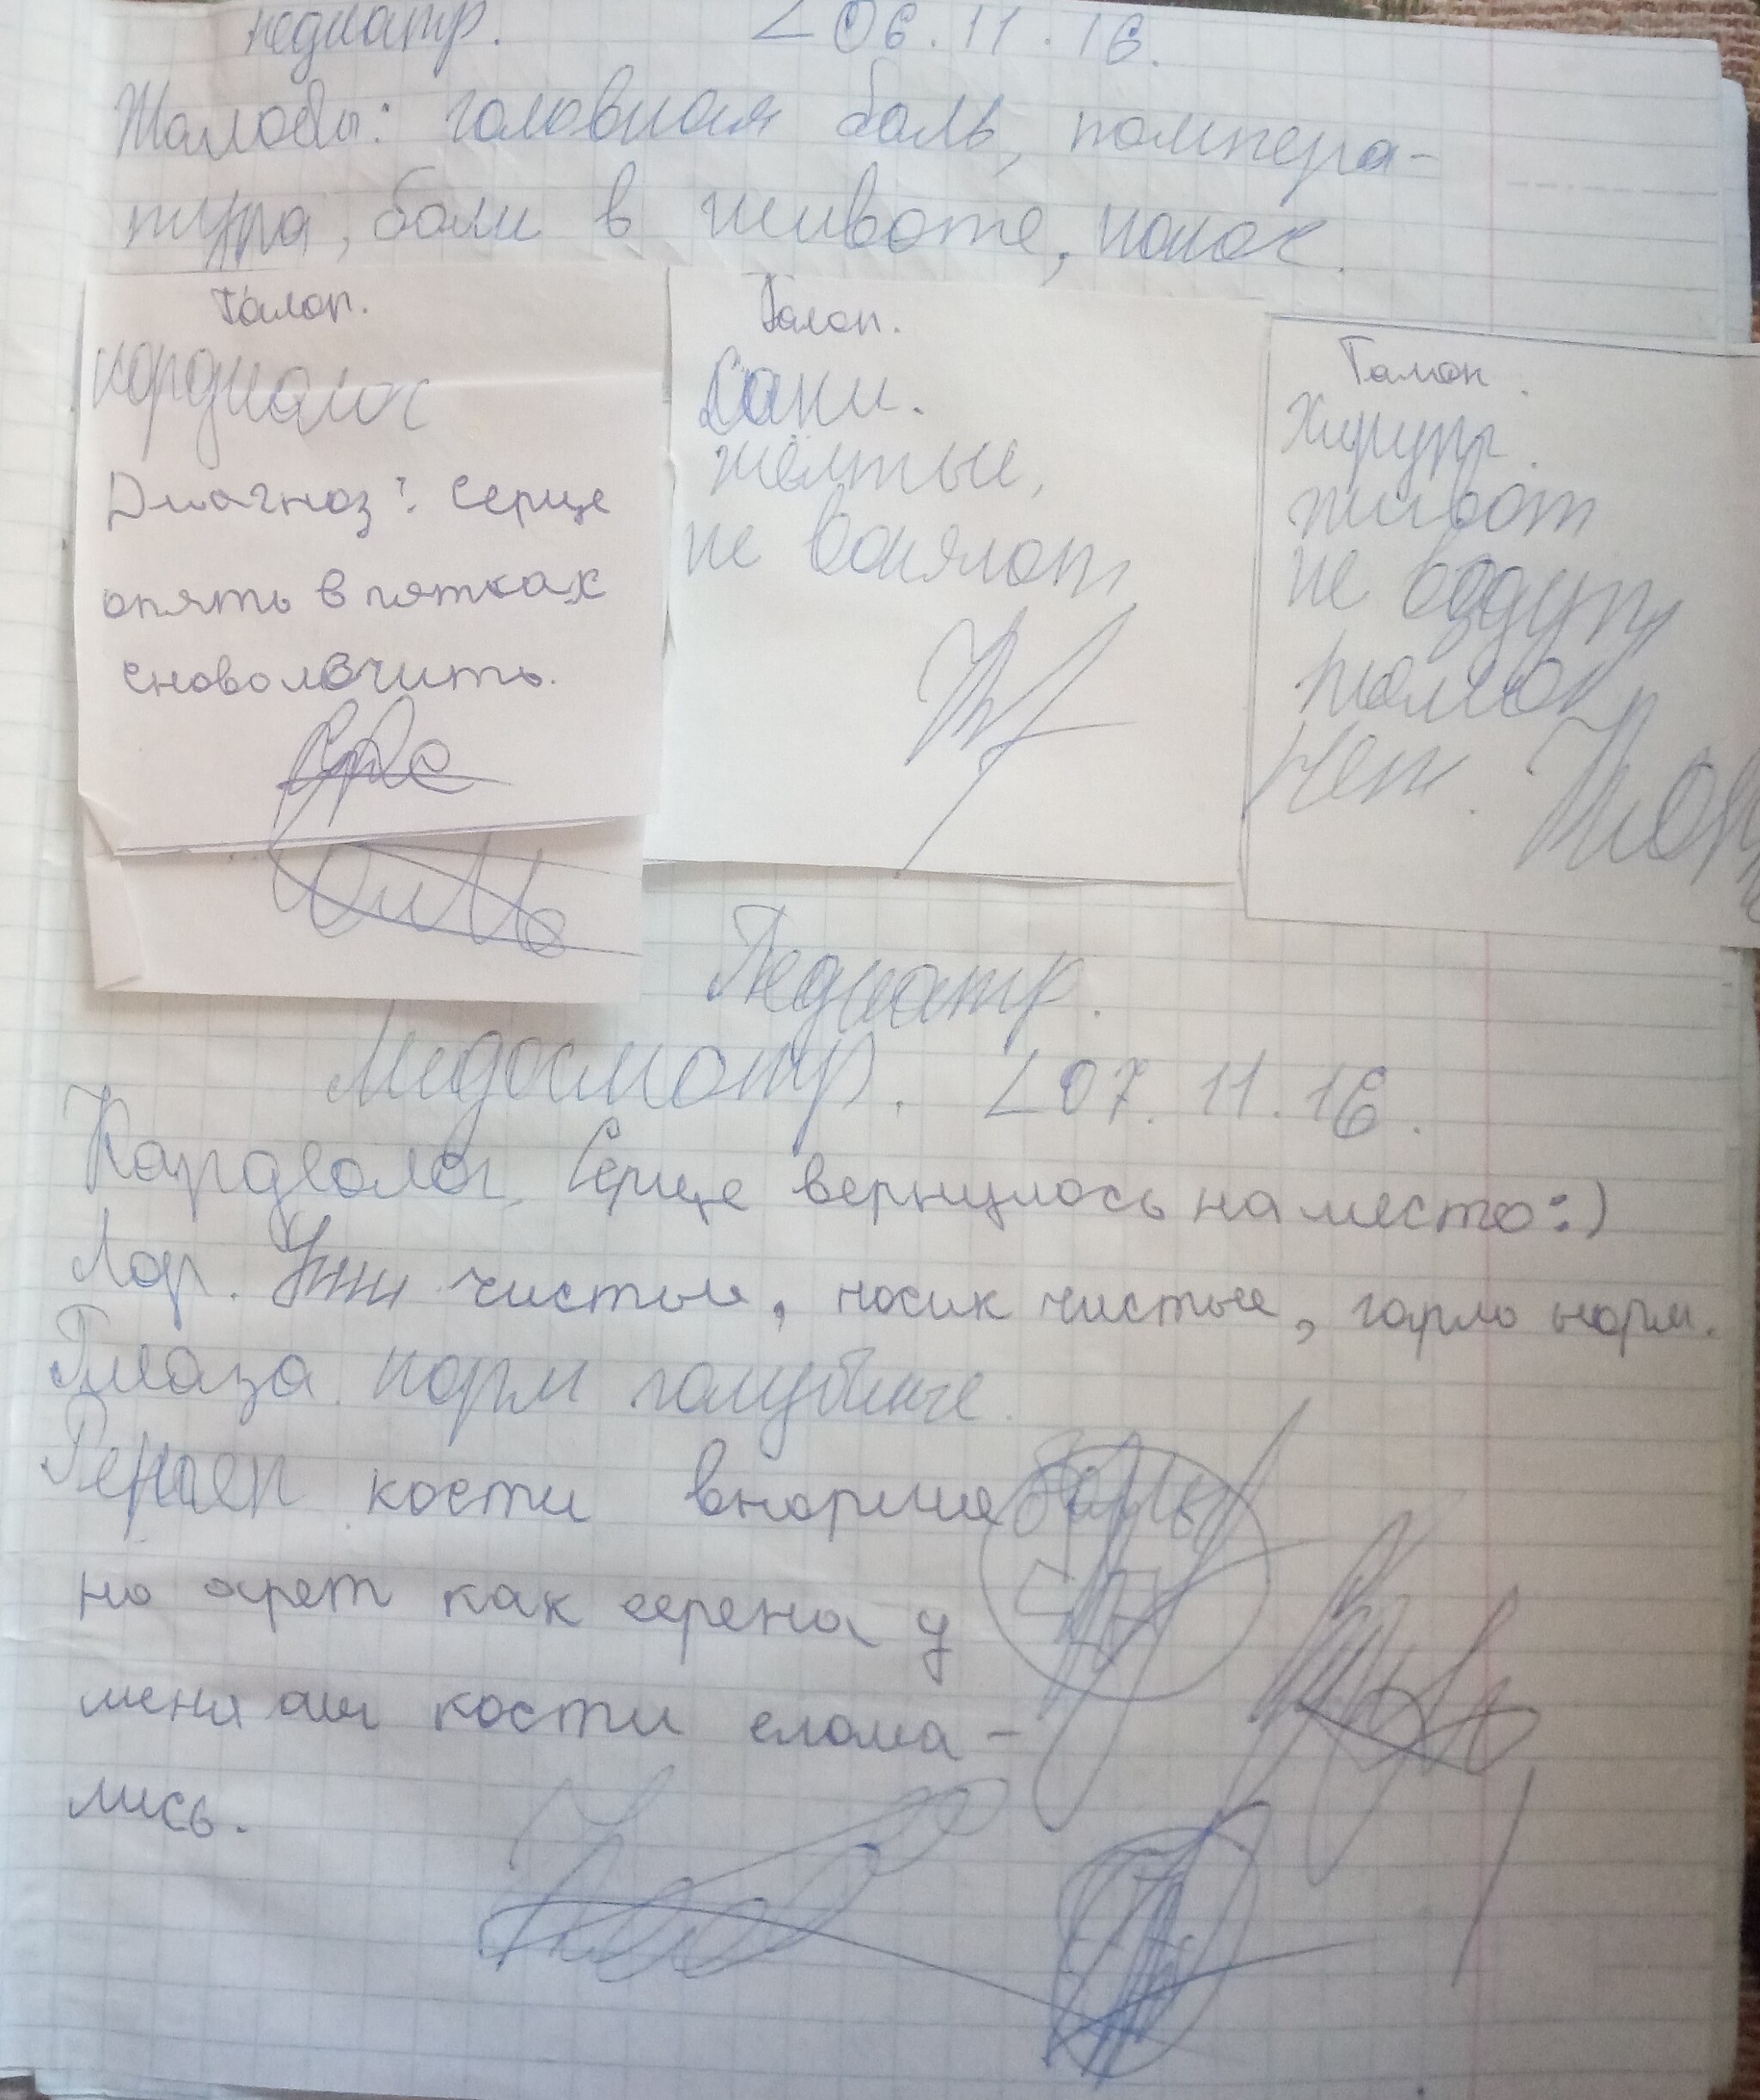 педиатр. ∠06.11.16.
Жалобы: головная боль, тампера-
тура, боли в животе, понос.
Талон.
кордиолог
Диагноз: Серце
опять в пятках
сново лечить.
Талон.
Соки.
жёлтые,
не воняют,
Талон.
Хирург.
живот
не вздут,
Педиатр.
Медосмотр. ∠07.11.16.
Кардеолог, Серце вернулось на место:)
Лор. Уши чистые, носик чистые, горло норм.
Глаза норм голубые.
Ренген кости внорме
но орет как серена у
меня аш кости слома-
лись.